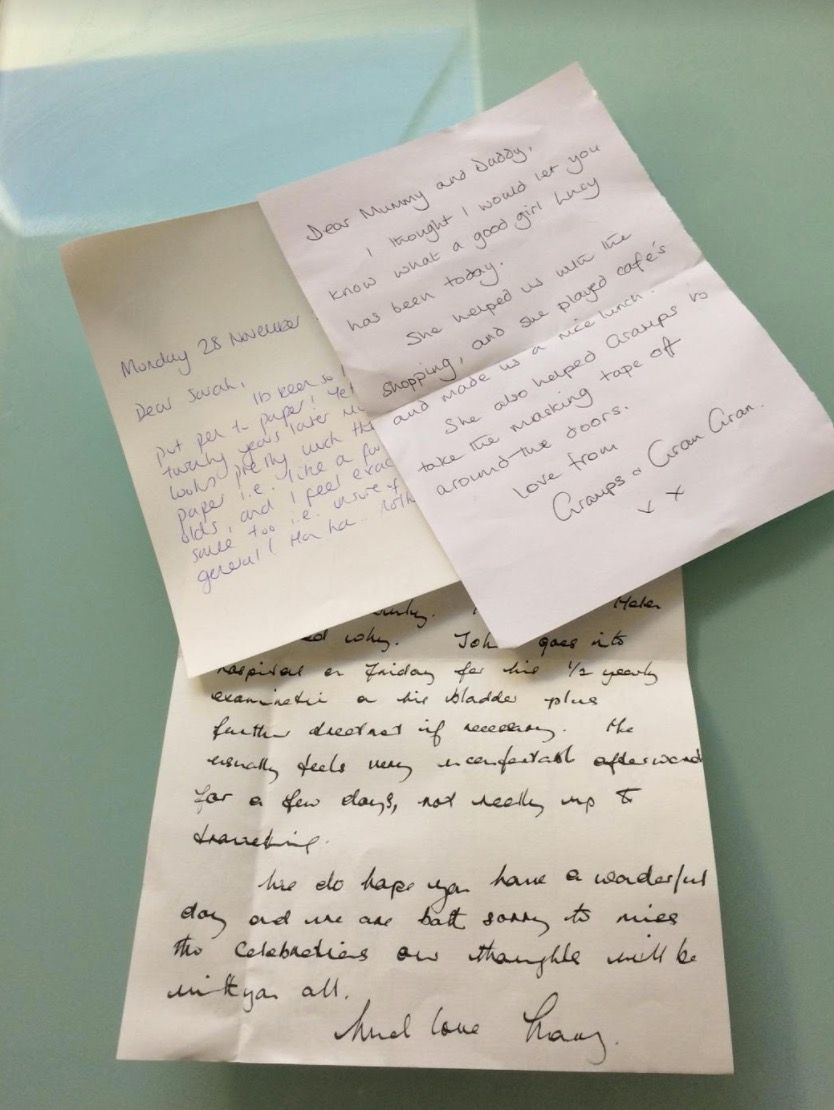 Dear Mummy and Daddy,
I thought I would let you
know what a good girl Lucy
has been today.
She helped us with the
shopping, and she played cafe's
and made us a nice lunch.
She also helped Gramps to
take the masking tape off
around the doors.
love from
Gramps & Gran Gran.
Monday 28 November
Dear Sarah,
Its been so
put pen to paper! Yet
twenty years later
looks pretty much
paper i.e. like a
olds, and I feel
same too i.e. unsure of
general! Ha ha
why. John goes into
hospital on Friday for his 1/2 yearly
examination on his bladder plus
further treatment if necessary. He
usually feels very uncomfortable afterward
for a few days, not really up to
travelling.
We do hope you have a wonderful
day and we are both sorry to miss
the celebrations our thoughts will be
with you all.
Much love